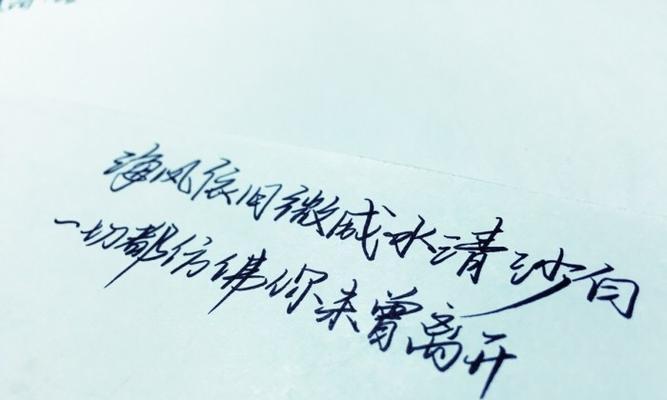 海风依旧微咸水清沙白
一切都仿佛你未曾离开